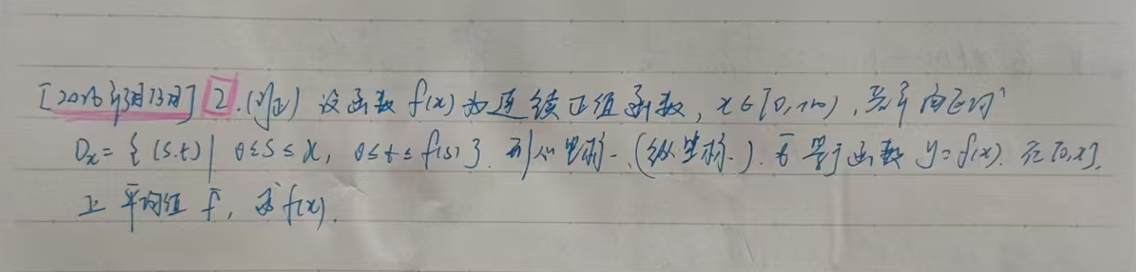 [2026年3月13日] 2. 设函数 f(x) 为连续正值函数, x∈[0,+∞), 若平面区域
Dx = { (s,t) | 0≤s≤x, 0≤t≤f(s) } 形心坐标 (纵坐标) 等于函数 y=f(x) 在[0,x]
上平均值, 求 f(x).